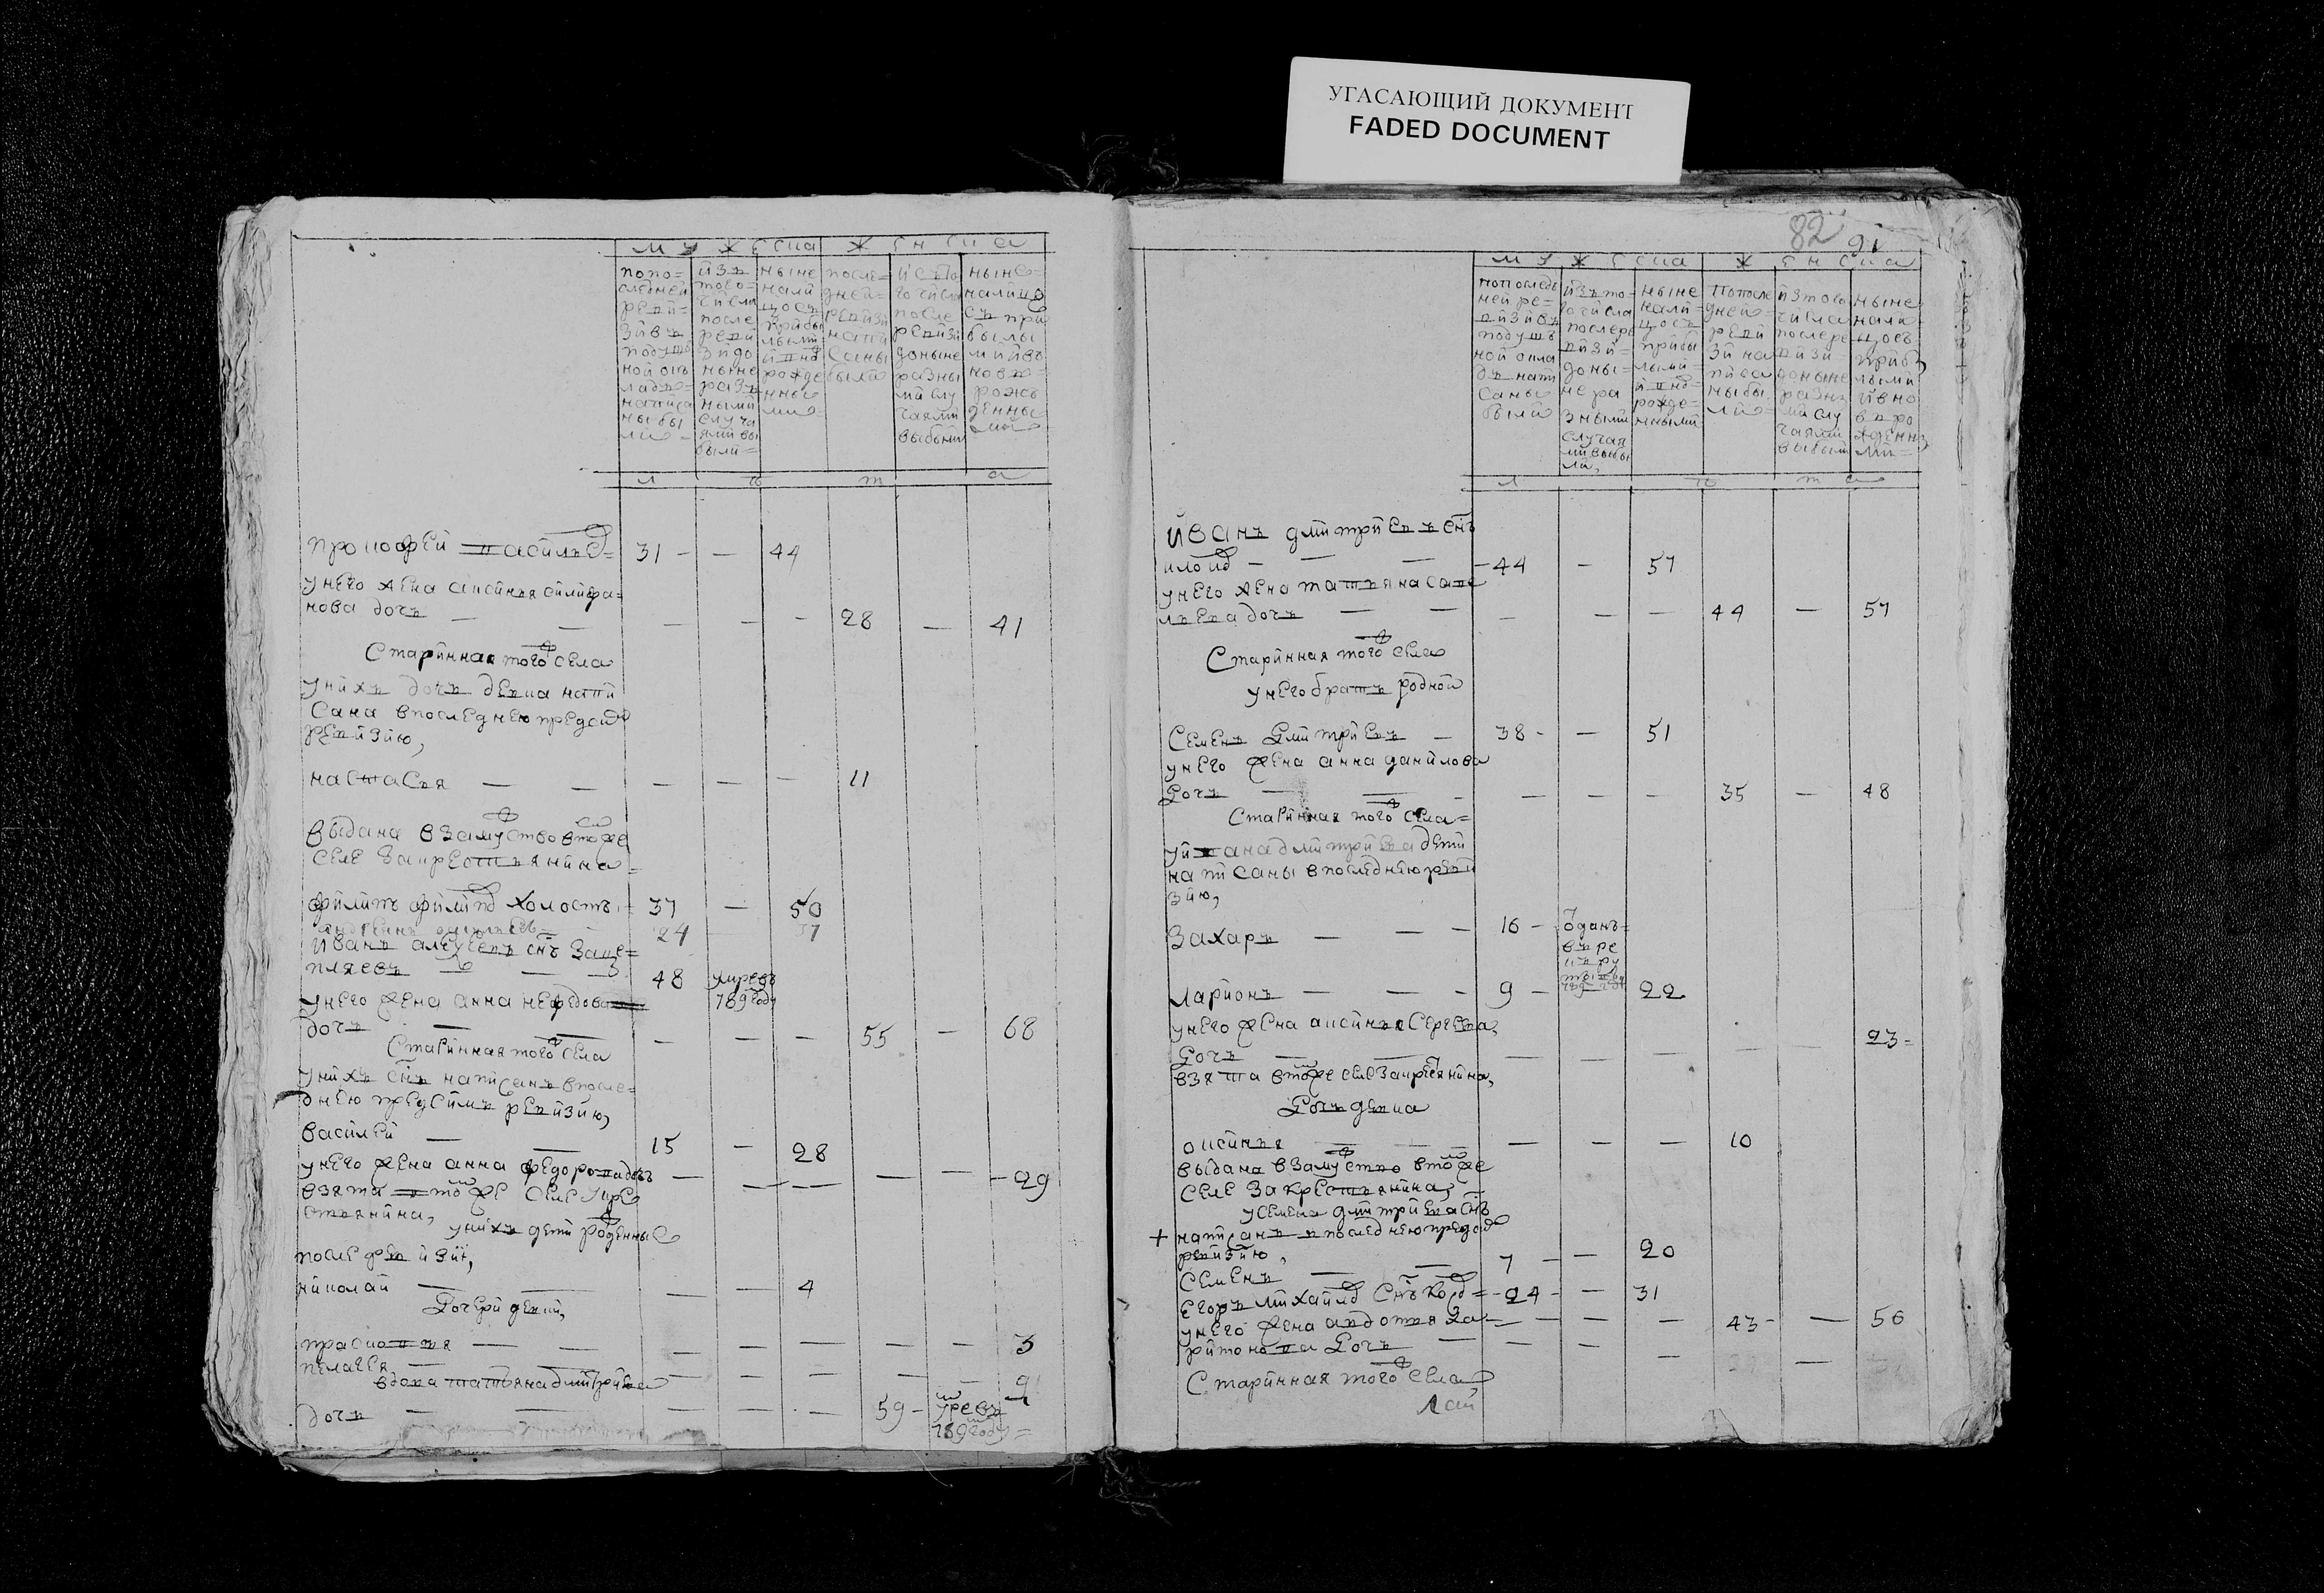 УГАСАЮЩИЙ ДОКУМЕНТ
FADED DOCUMENT
мужеска женска
попо=
следней
реви=
зи въ
подуш
ной ок
ладъ=
написа
ны бы
ли=
изъ
того=
числа
после
реви
зи до
ныне
разъ
ными
случа
ями вы
были=
ныне
нали
цо съ
прибы
лыми
и вно
рожде
нны
ми=
после=
дней=
ревизи
напи
саны
были
ис то
го числа
после
ревизи
доныне
разны
ми слу
чаями
выбыли
ныне=
налицо
съ при
былы
ми и въ
новъ=
рожъ
денны
ми=
лета
прокофей василев= 31 - — 44
унего жена аксинья
нова дочь — — — — — 28 — 41
Старинная того села
унихъ дочь девка напи
сана впоследнею пред сим
ревизию,
настасья — — — — — 11
выдана взамуство втом же
селе за крестьянина=
филипъ филипов холостъ= 37 — 50
24 37
Иванъ алексеевъ снъ
48 умре въ
789 году
унего жена анна нефедова
дочь — — — — — 55 — 68
Старинная того села
унихъ снъ написанъ впосле=
днею предсимъ ревизию,
василей — — 15 — 28
унего жена анна федорова дочь — — — — — 29
взята втом же селе у кре
стьянина,
унихъ дети рожденные
после ревизии,
николай — — — — 4
Дочери девки,
прасковья — — — — — — — 3
пелагея — — — — — —
вдова татьяна дмитриева
дочь — — — — — 59 - умре въ
789 году=
82
91
мужеска женска
попоследъ
ней ре=
визи въ
подушъ
ной окла
дъ напи
саны
были
изъ то=
го числа
после ре
визи=
доны=
не ра
зными
случая
ми выбы
ли,
ныне
нали=
цо съ
прибы
лыми=
и вно=
рожде=
нными
попосле
дней=
реви
зи на
писа
ны бы
ли=
изтого
числа
после ре
визи=
доныне
разны
ми слу
чаями
выбыли
ныне
нали
цо съ
прибы
лыми
и вно
въ ро
жденны
ми=
лета
Иванъ дмитриевъ снъ
— — -44 - 57
унего жена татьяна саве
льева дочь — — — — — 44 — 57
Старинная того села
унего братъ родной
Семенъ Дмитриевъ — 38 - — 51
унего жена анна данилова
Дочь — — - — — — 35 — 48
Старинная того села=
у ивана дмитриева дети
написаны впоследнею реви
зию,
Захаръ — — - 16 - оданъ=
въ ре
кру
ты въ
789 году
Ларионъ — — - 9 - 22
унего жена аксинья сергеева,
Дочь — — — — — — — 23=
взята втом же селе за крестянина,
Дочь девка
оксинья — — — — — 10
выдана взамуство втом же
селе за крестьянина,
у семена дмитриева снъ
+ написанъ в последнею пред сим
ревизию,
Семенъ — — 7 — — 20
Егоръ михайлов снъ -24- — 31
унего жена авдотья ха=
ритонова Дочь — — — — 43- — 56
Старинная того села,